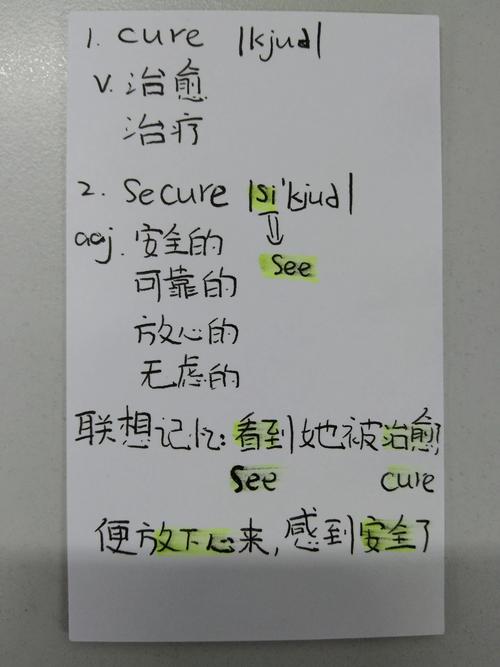 1. cure |kjuə|
v. 治愈
治疗
2. Secure |si'kjuə|
⇓
adj. 安全的
See
可靠的
放心的
无虑的
联想记忆: 看到她被治愈了
See cure
便放下心来, 感到安全了